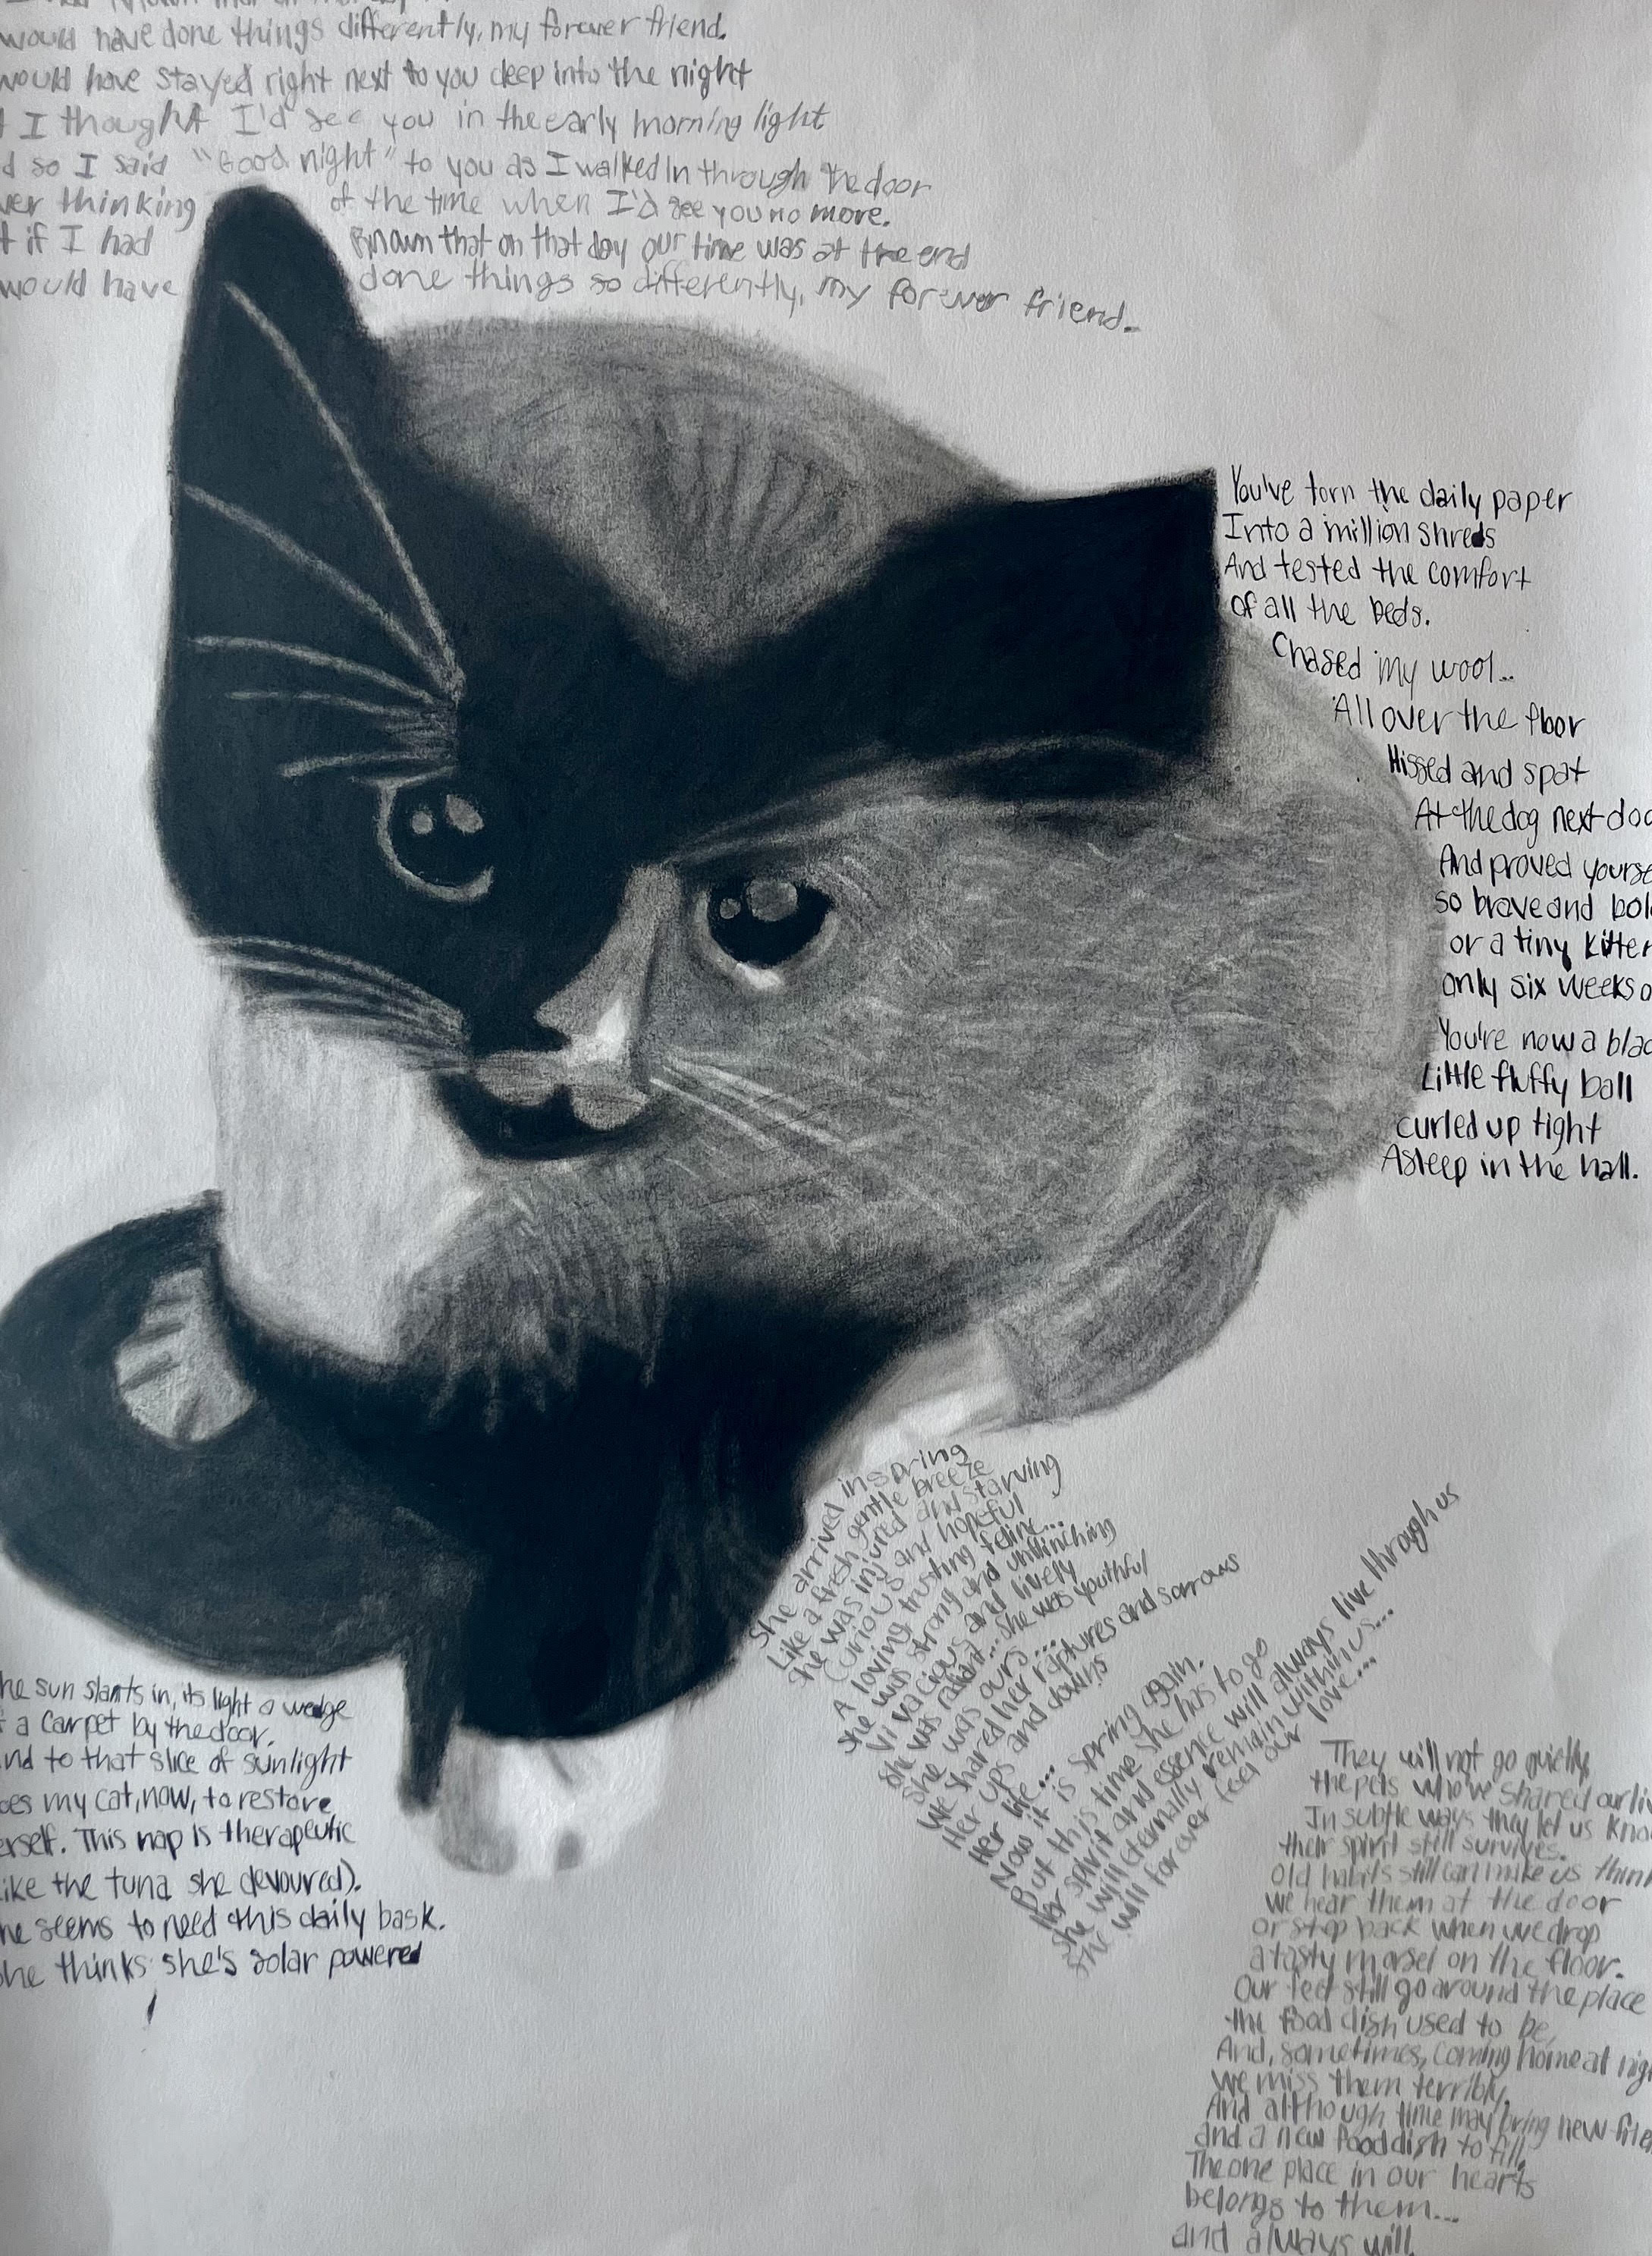 would have done things differently, my forever friend.
would have stayed right next to you deep into the night
I thought I'd see you in the early morning light
d so I said "Good night" to you as I walked in through the door
ver thinking of the time when I'd see you no more.
t if I had known that on that day our time was at the end
would have done things so differently, my forever friend.
You've torn the daily paper
Into a million shreds
And tested the comfort
of all the beds.
Chased my wool...
All over the floor
Hissed and spat
At the dog next doo
And proved yourse
so brave and bol
or a tiny kitten
only six weeks o
You're now a blac
Little fluffy ball
curled up tight
Asleep in the hall.
She arrived in spring
Like a fresh gentle breeze
she was injured and starving
Curious and hopeful
A loving trusting feline...
She was strong and unflinching
Vivacious and lively
She was radiant... she was youthful
She was ours...
We shared her raptures and sorrows
Her ups and downs
Her life...
Now it is spring again.
But this time she has to go
Her spirit and essence will always live through us
She will eternally remain within us...
She will forever feel our love...
he sun slants in, its light a wedge
f a carpet by the door.
nd to that slice of sunlight
oes my cat, now, to restore
erself. This nap is therapeutic
like the tuna she devoured).
he seems to need this daily bask.
she thinks she's solar powered
They will not go quietly,
the pets who've shared our liv
In subtle ways they let us know
their spirit still survives.
Old habits still can make us think
we hear them at the door
or step back when we drop
a tasty morsel on the floor.
Our feet still go around the place
the food dish used to be,
And, sometimes, coming home at nigh
we miss them terribly.
And although time may bring new frien
and a new food dish to fill,
The one place in our hearts
belongs to them...
and always will.